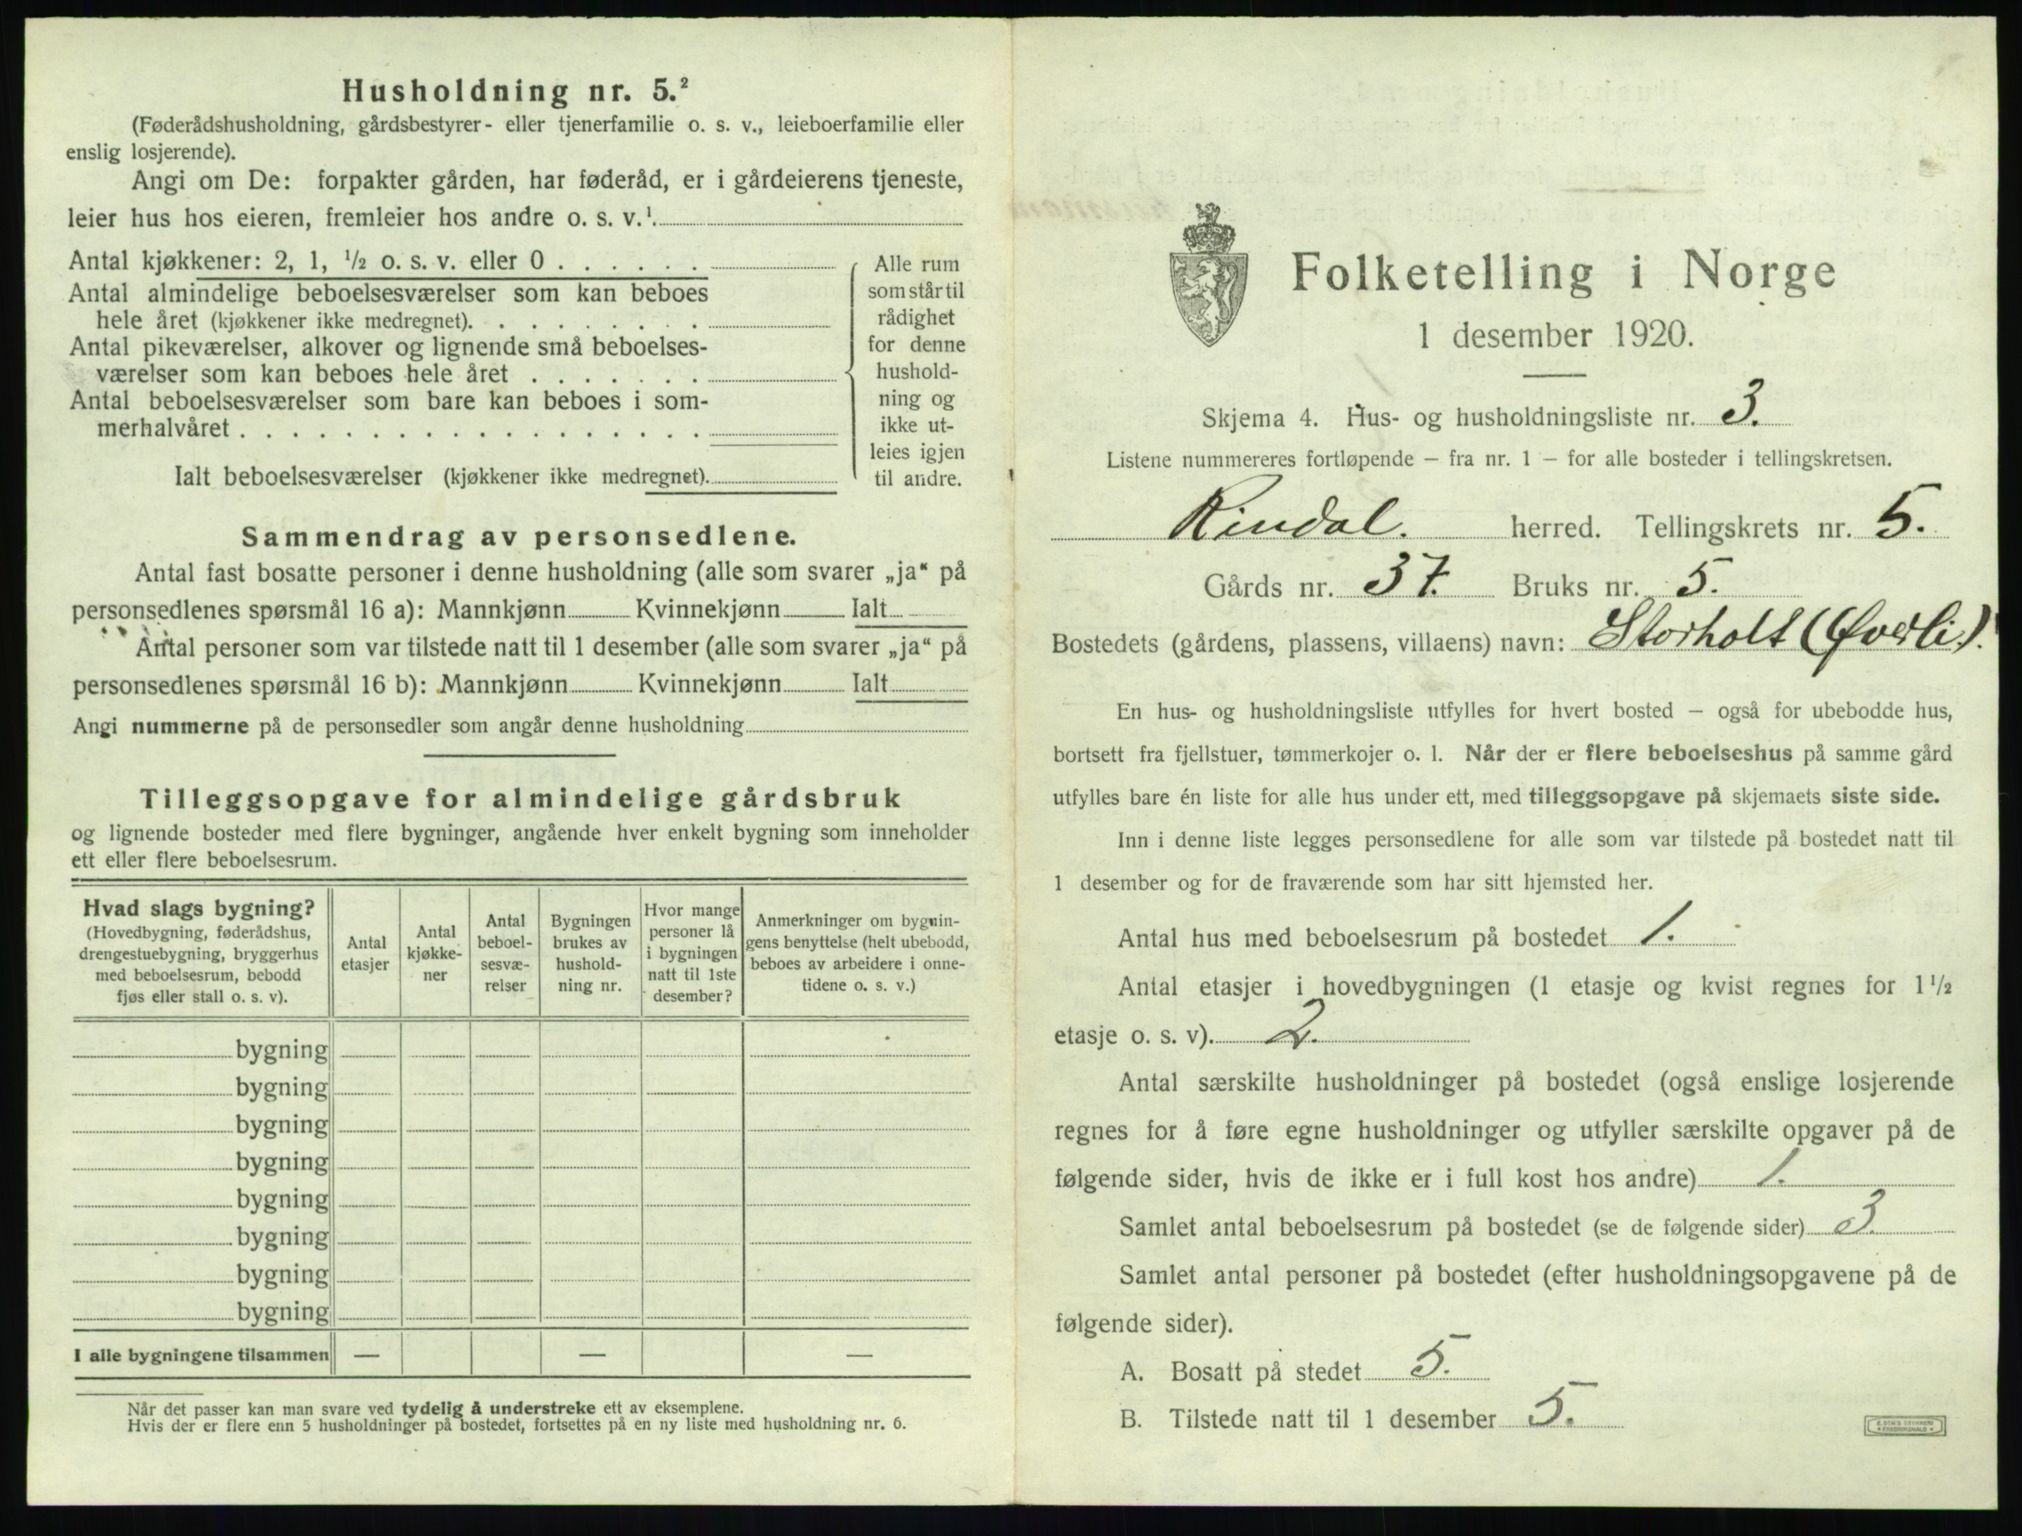 Husholdning nr. 5.²
(Føderådshusholdning, gårdsbestyrer- eller tjenerfamilie o. s. v., leieboerfamilie eller
enslig losjerende).
Angi om De: forpakter gården, har føderåd, er i gårdeierens tjeneste,
leier hus hos eieren, fremleier hos andre o. s. v.¹
Antal kjøkkener: 2, 1, ½ o. s. v. eller 0 . . . . . .
Antal almindelige beboelsesværelser som kan beboes
hele året (kjøkkener ikke medregnet). . . . . . . . .
Antal pikeværelser, alkover og lignende små beboelses-
værelser som kan beboes hele året . . . . . . .
Antal beboelsesværelser som bare kan beboes i som-
merhalvåret . . . . . . . . . . . . . . . . . .
Ialt beboelsesværelser (kjøkkener ikke medregnet).
Alle rum
som står til
rådighet
for denne
hushold-
ning og
ikke ut-
leies igjen
til andre.
Sammendrag av personsedlene.
Antal fast bosatte personer i denne husholdning (alle som svarer „ja“ på
personsedlenes spørsmål 16 a): Mannkjønn Kvinnekjønn Ialt
Antal personer som var tilstede natt til 1 desember (alle som svarer „ja“ på
personsedlenes spørsmål 16 b): Mannkjønn Kvinnekjønn Ialt
Angi nummerne på de personsedler som angår denne husholdning
Tilleggsopgave for almindelige gårdsbruk
og lignende bosteder med flere bygninger, angående hver enkelt bygning som inneholder
ett eller flere beboelsesrum.
Hvad slags bygning?
(Hovedbygning, føderådshus,
drengestuebygning, bryggerhus
med beboelsesrum, bebodd
fjøs eller stall o. s. v).
Antal
etasjer
Antal
kjøkke-
ner
Antal
beboel-
sesvæ-
relser
Bygningen
brukes av
hushold-
ning nr.
Hvor mange
personer lå
i bygningen
natt til 1ste
desember?
Anmerkninger om bygnin-
gens benyttelse (helt ubebodd,
beboes av arbeidere i onne-
tidene o. s. v.)
bygning
bygning
bygning
bygning
bygning
bygning
bygning
bygning
I alle bygningene tilsammen — — —
Når det passer kan man svare ved tydelig å understreke ett av eksemplene.
Hvis der er flere enn 5 husholdninger på bostedet, fortsettes på en ny liste med husholdning nr. 6.
Folketelling i Norge
1 desember 1920.
Skjema 4. Hus- og husholdningsliste nr. 3.
Listene nummereres fortløpende – fra nr. 1 – for alle bosteder i tellingskretsen.
Rindal. herred. Tellingskrets nr. 5.
Gårds nr. 37. Bruks nr. 5.
Bostedets (gårdens, plassens, villaens) navn: Storholt (Øverli).
En hus- og husholdningsliste utfylles for hvert bosted – også for ubebodde hus,
bortsett fra fjellstuer, tømmerkojer o. l. Når der er flere beboelseshus på samme gård
utfylles bare én liste for alle hus under ett, med tilleggsopgave på skjemaets siste side.
Inn i denne liste legges personsedlene for alle som var tilstede på bostedet natt til
1 desember og for de fraværende som har sitt hjemsted her.
Antal hus med beboelsesrum på bostedet 1.
Antal etasjer i hovedbygningen (1 etasje og kvist regnes for 1 ½
etasje o. s. v). 2.
Antal særskilte husholdninger på bostedet (også enslige losjerende
regnes for å føre egne husholdninger og utfyller særskilte opgaver på de
følgende sider, hvis de ikke er i full kost hos andre) 1.
Samlet antal beboelsesrum på bostedet (se de følgende sider) 3.
Samlet antal personer på bostedet (efter husholdningsopgavene på de
følgende sider).
A. Bosatt på stedet 5.
B. Tilstede natt til 1 desember 5.